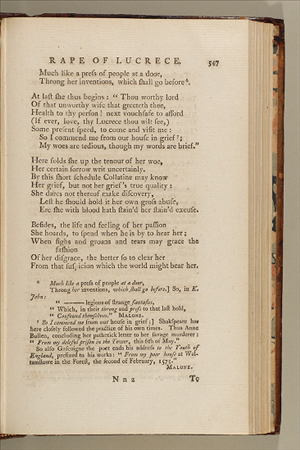 RAPE OF LUCRECE. 547
Much like a preſs of people at a door,
Throng her inventions, which ſhall go before⁶.
At laſt ſhe thus begins: “ Thou worthy lord
Of that unworthy wife that greeteth thee,
Health to thy perſon! next vouchſafe to afford
(If ever, love, thy Lucrece thou wilt ſee,)
Some preſent ſpeed, to come and viſit me:
So I commend me from our houſe in grief⁷;
My woes are tedious, though my words are brief.”
Here folds ſhe up the tenour of her woe,
Her certain ſorrow writ uncertainly.
By this ſhort ſchedule Collatine may know
Her grief, but not her grief's true quality:
She dares not thereof make diſcovery,
Leſt he ſhould hold it her own groſs abuſe,
Ere ſhe with blood hath ſtain'd her ſtain'd excuſe.
Beſides, the life and feeling of her paſſion
She hoards, to ſpend when he is by to hear her;
When ſighs and groans and tears may grace the
faſhion
Of her diſgrace, the better ſo to clear her
From that ſuſpicion which the world might bear her.
⁶ Much like a preſs of people at a door,
Throng her inventions, which ſhall go before.] So, in K.
John:
“ ——— legions of ſtrange fantaſies,
“ Which, in their throng and preſs to that laſt hold,
“ Confound themſelves.” MALONE.
⁷ So I commend me from our houſe in grief;] Shakſpeare has
here cloſely followed the practice of his own times. Thus Anne
Bullen, concluding her pathetick letter to her ſavage murderer:
“ From my doleful priſon in the Tower, this 6th of May.”
So alſo Gaſcoigne the poet ends his addreſs to the Youth of
England, prefixed to his works: “ From my poor houſe at Wal-
tamſtowe in the Foreſt, the ſecond of February, 1575.”
MALONE.
N n 2 To